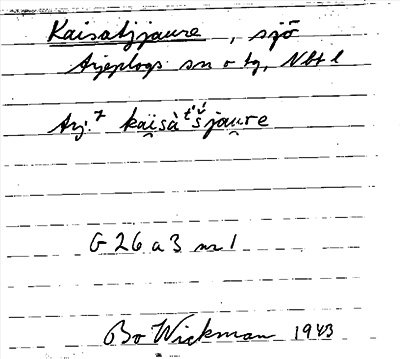 Kaisatjjaure, sjö
Arjeplogs sn o tg, Nbt l
Arj.⁷ kai̯sàt́'š́jau̯re
G 26 a 3 nr 1
Bo Wickman 1943